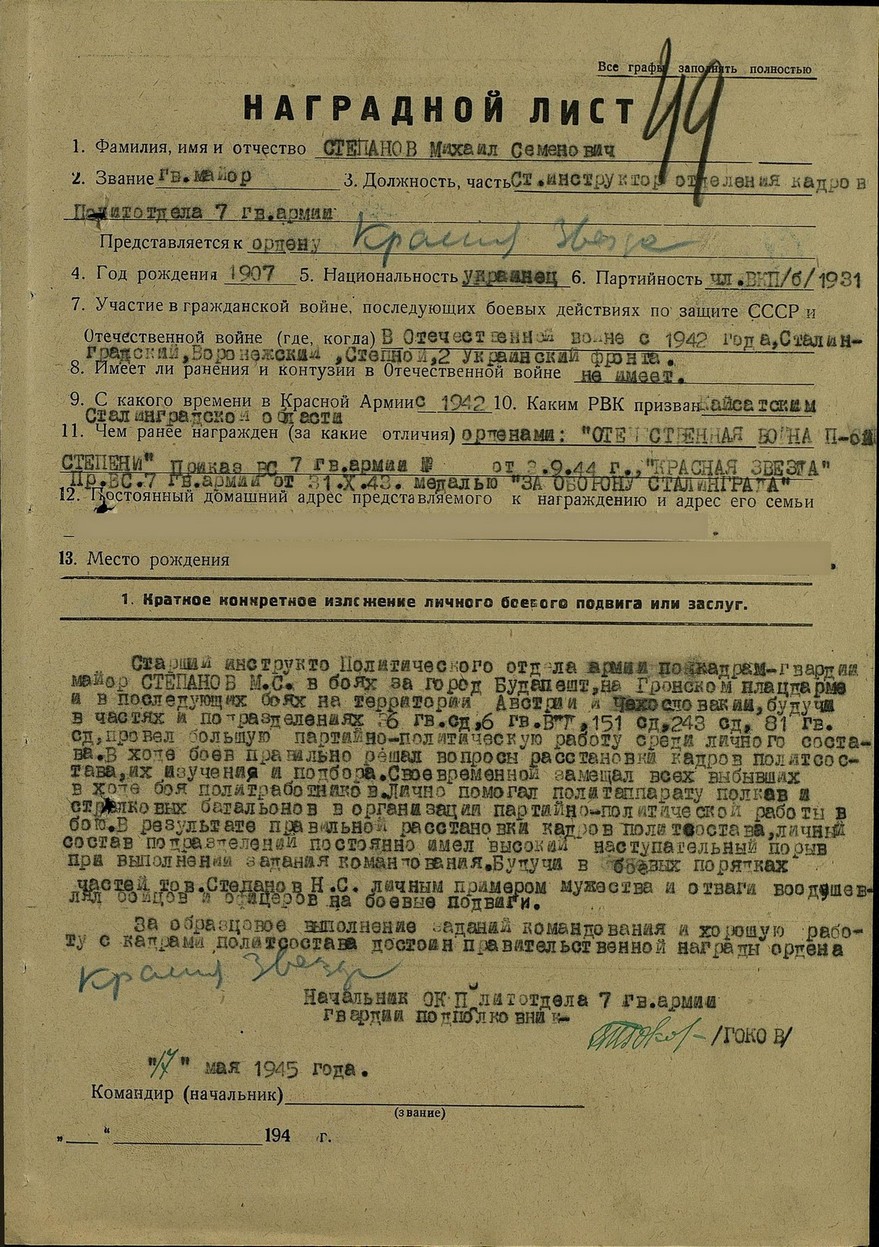 Все графы заполнять полностью
49
НАГРАДНОЙ ЛИСТ
1. Фамилия, имя и отчество СТЕПАНОВ Михаил Семенович
2. Звание гв.майор 3. Должность, часть Ст.инструктор отделения кадров
Политотдела 7 гв.армии
Представляется к ордену Красная Звезда
4. Год рождения 1907 5. Национальность украинец 6. Партийность чл.ВКП/б/1931
7. Участие в гражданской войне, последующих боевых действиях по защите СССР и
Отечественной войне (где, когда) В Отечественной войне с 1942 года,Сталин-
градский,Воронежский ,Степной,2 Украинский фронта.
8. Имеет ли ранения и контузии в Отечественной войне не имеет.
9. С какого времени в Красной Армии с 1942 10. Каким РВК призван
Сталинградской области
11. Чем ранее награжден (за какие отличия) орденами: "ОТЕЧЕСТВЕННАЯ ВОЙНА П-ой
СТЕПЕНИ" Приказ ВС 7 гв.армии № от 9.44 г.,"КРАСНАЯ ЗВЕЗДА"
Пр.ВС.7 гв.армии от 31.X.43. медалью "ЗА ОБОРОНУ СТАЛИНГРАДА"
12. Постоянный домашний адрес представляемого к награждению и адрес его семьи
13. Место рождения
1. Краткое конкретное изложение личного боевого подвига или заслуг.
Старший инструкто Политического отдела армии по кадрам-гвардии
майор СТЕПАНОВ М.С. в боях за город Будапешт,на Гронском плацдарме
и в последующих боях на территории Австрии и Чехословакии,будучи
в частях и подразделениях 6 гв.сд,6 гв.ВДД,151 сд,243 сд, 81 гв.
сд,провел большую партийно-политическую работу среди личного соста-
ва.В ходе боев правильно решал вопросы расстановки кадров политсос-
тава,их изучения и подбора.Своевременной замещал всех выбывших
в ходе боя политработников.Лично помогал политаппарату полков и
стрелковых батальонов в организации партийно-политической работы в
бою.В результате правильной расстановки кадров политсостава,личный
состав подразделений постоянно имел высокий наступательный порыв
при выполнении задания командования.Будучи в боевых порядках
частей тов.Степанов Н.С. личным примером мужества и отваги воодушев-
лял бойцов и офицеров на боевые подвиги.
За образцовое выполнение заданий командования и хорошую рабо-
ту с кадрами политсостава достоин правительственной награды ордена
Красная Звезда
Начальник ОК Политотдела 7 гв.армии
гвардии подполковник-
/ГОКОВ/
"17" мая 1945 года.
Командир (начальник)
(звание)
„ “ 194 г.